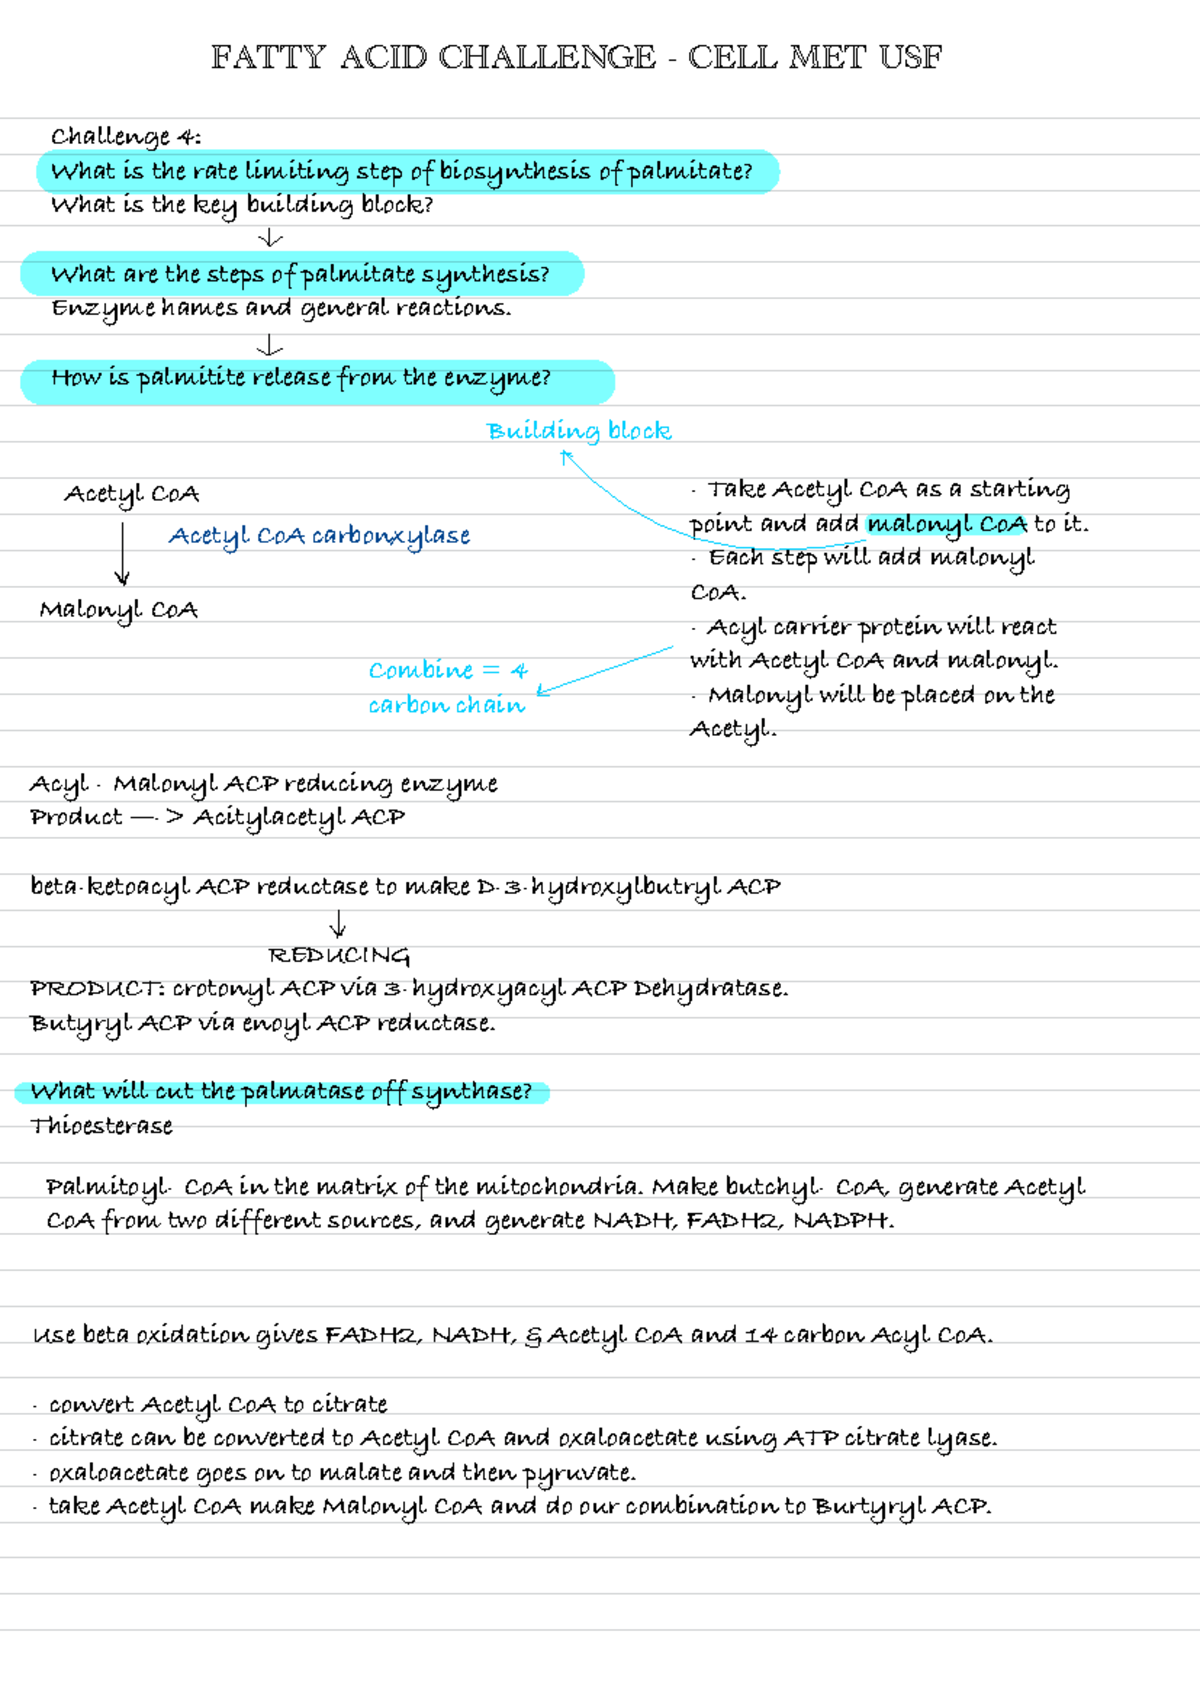 FATTY ACID CHALLENGE - CELL MET USF
Challenge 4:
What is the rate limiting step of biosynthesis of palmitate?
What is the key building block?
What are the steps of palmitate synthesis?
Enzyme hames and general reactions.
How is palmitite release from the enzyme?
Building block
Acetyl CoA
Acetyl CoA carbonxylase
Malonyl CoA
- Take Acetyl CoA as a starting
point and add malonyl CoA to it.
- Each step will add malonyl
CoA.
- Acyl carrier protein will react
with Acetyl CoA and malonyl.
- Malonyl will be placed on the
Acetyl.
Combine = 4
carbon chain
Acyl - Malonyl ACP reducing enzyme
Product —- > Acitylacetyl ACP
beta-ketoacyl ACP reductase to make D-3-hydroxylbutryl ACP
REDUCING
PRODUCT: crotonyl ACP via 3-hydroxyacyl ACP Dehydratase.
Butyryl ACP via enoyl ACP reductase.
What will cut the palmatase off synthase?
Thioesterase
Palmitoyl- CoA in the matrix of the mitochondria. Make butchyl- CoA, generate Acetyl
CoA from two different sources, and generate NADH, FADH2, NADPH.
Use beta oxidation gives FADH2, NADH, & Acetyl CoA and 14 carbon Acyl CoA.
- convert Acetyl CoA to citrate
- citrate can be converted to Acetyl CoA and oxaloacetate using ATP citrate lyase.
- oxaloacetate goes on to malate and then pyruvate.
- take Acetyl CoA make Malonyl CoA and do our combination to Burtyryl ACP.